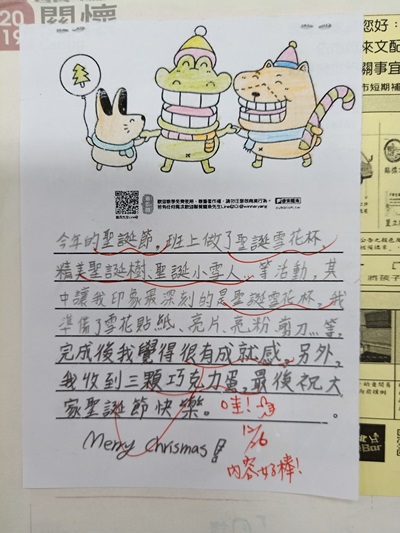 2019
關懷
您好:
來文配
關事宜
市短期補
今年的聖誕節,班上做了聖誕雪花杯、
精美聖誕樹、聖誕小雪人…等活動,其
中讓我印象最深刻的是聖誕雪花杯,我
準備了雪花貼紙、亮片、亮粉、剪刀…等,
完成後我覺得很有成就感。另外,
我收到三顆巧克力蛋,最後祝大
家聖誕節快樂。
哇!
Merry Chrismas!
12/6
內容好棒!